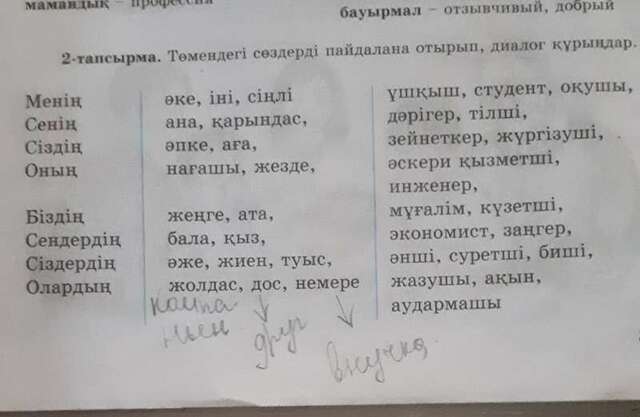 мамандық – профессия
бауырмал – отзывчивый, добрый
2-тапсырма. Төмендегі сөздерді пайдалана отырып, диалог құрыңдар.
Менің әке, іні, сіңлі ұшқыш, студент, оқушы,
Сенің ана, қарындас, дәрігер, тілші,
Сіздің әпке, аға, зейнеткер, жүргізуші,
Оның нағашы, жезде, әскери қызметші,
инженер,
Біздің жеңге, ата, мұғалім, күзетші,
Сендердің бала, қыз, экономист, заңгер,
Сіздердің әже, жиен, туыс, әнші, суретші, биші,
Олардың жолдас, дос, немере жазушы, ақын,
аудармашы
друг
внучка